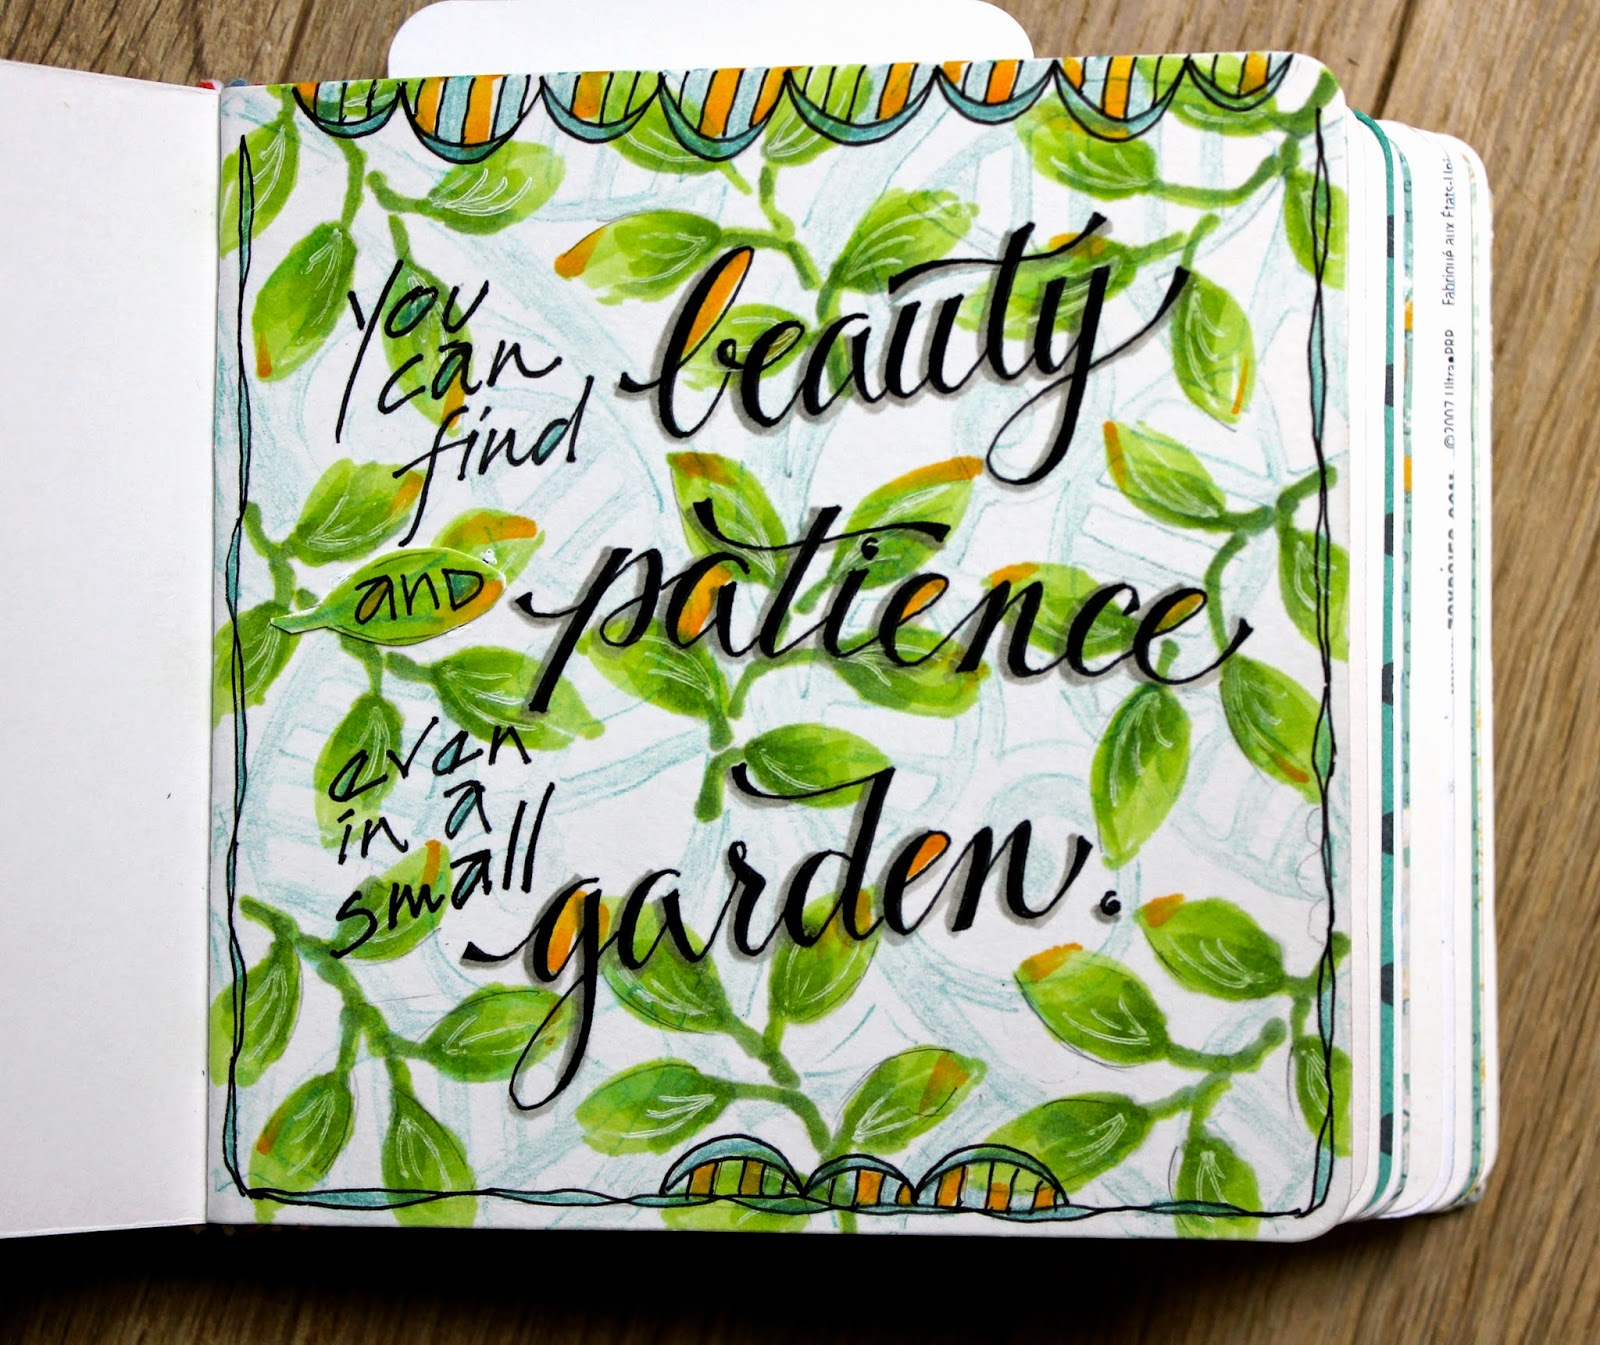 You
can
find
beauty
and
patience
even
in a
small
garden.
Fabriqué aux États-Uni
©2007 Ultra•PRO